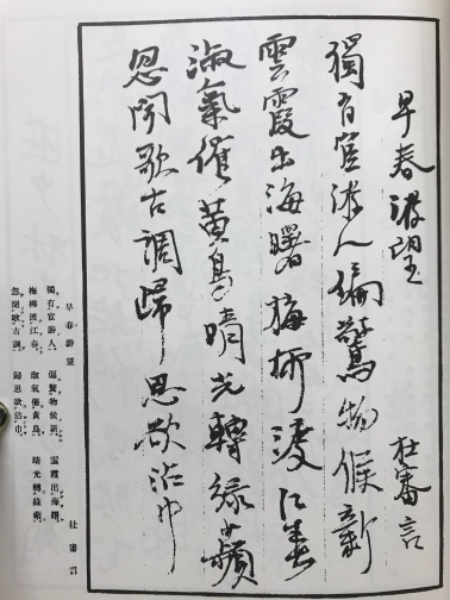 早春游望 杜審言
獨有宦游人偏驚物候新
雲霞出海曙梅柳渡江春
淑氣催黃鳥晴光轉綠蘋
忽聞歌古調歸思欲沾巾
早春游望 杜審言
獨有宦游人。偏驚物候新。雲霞出海曙。
梅柳渡江春。淑氣催黃鳥。晴光轉綠蘋。
忽聞歌古調。歸思欲沾巾。